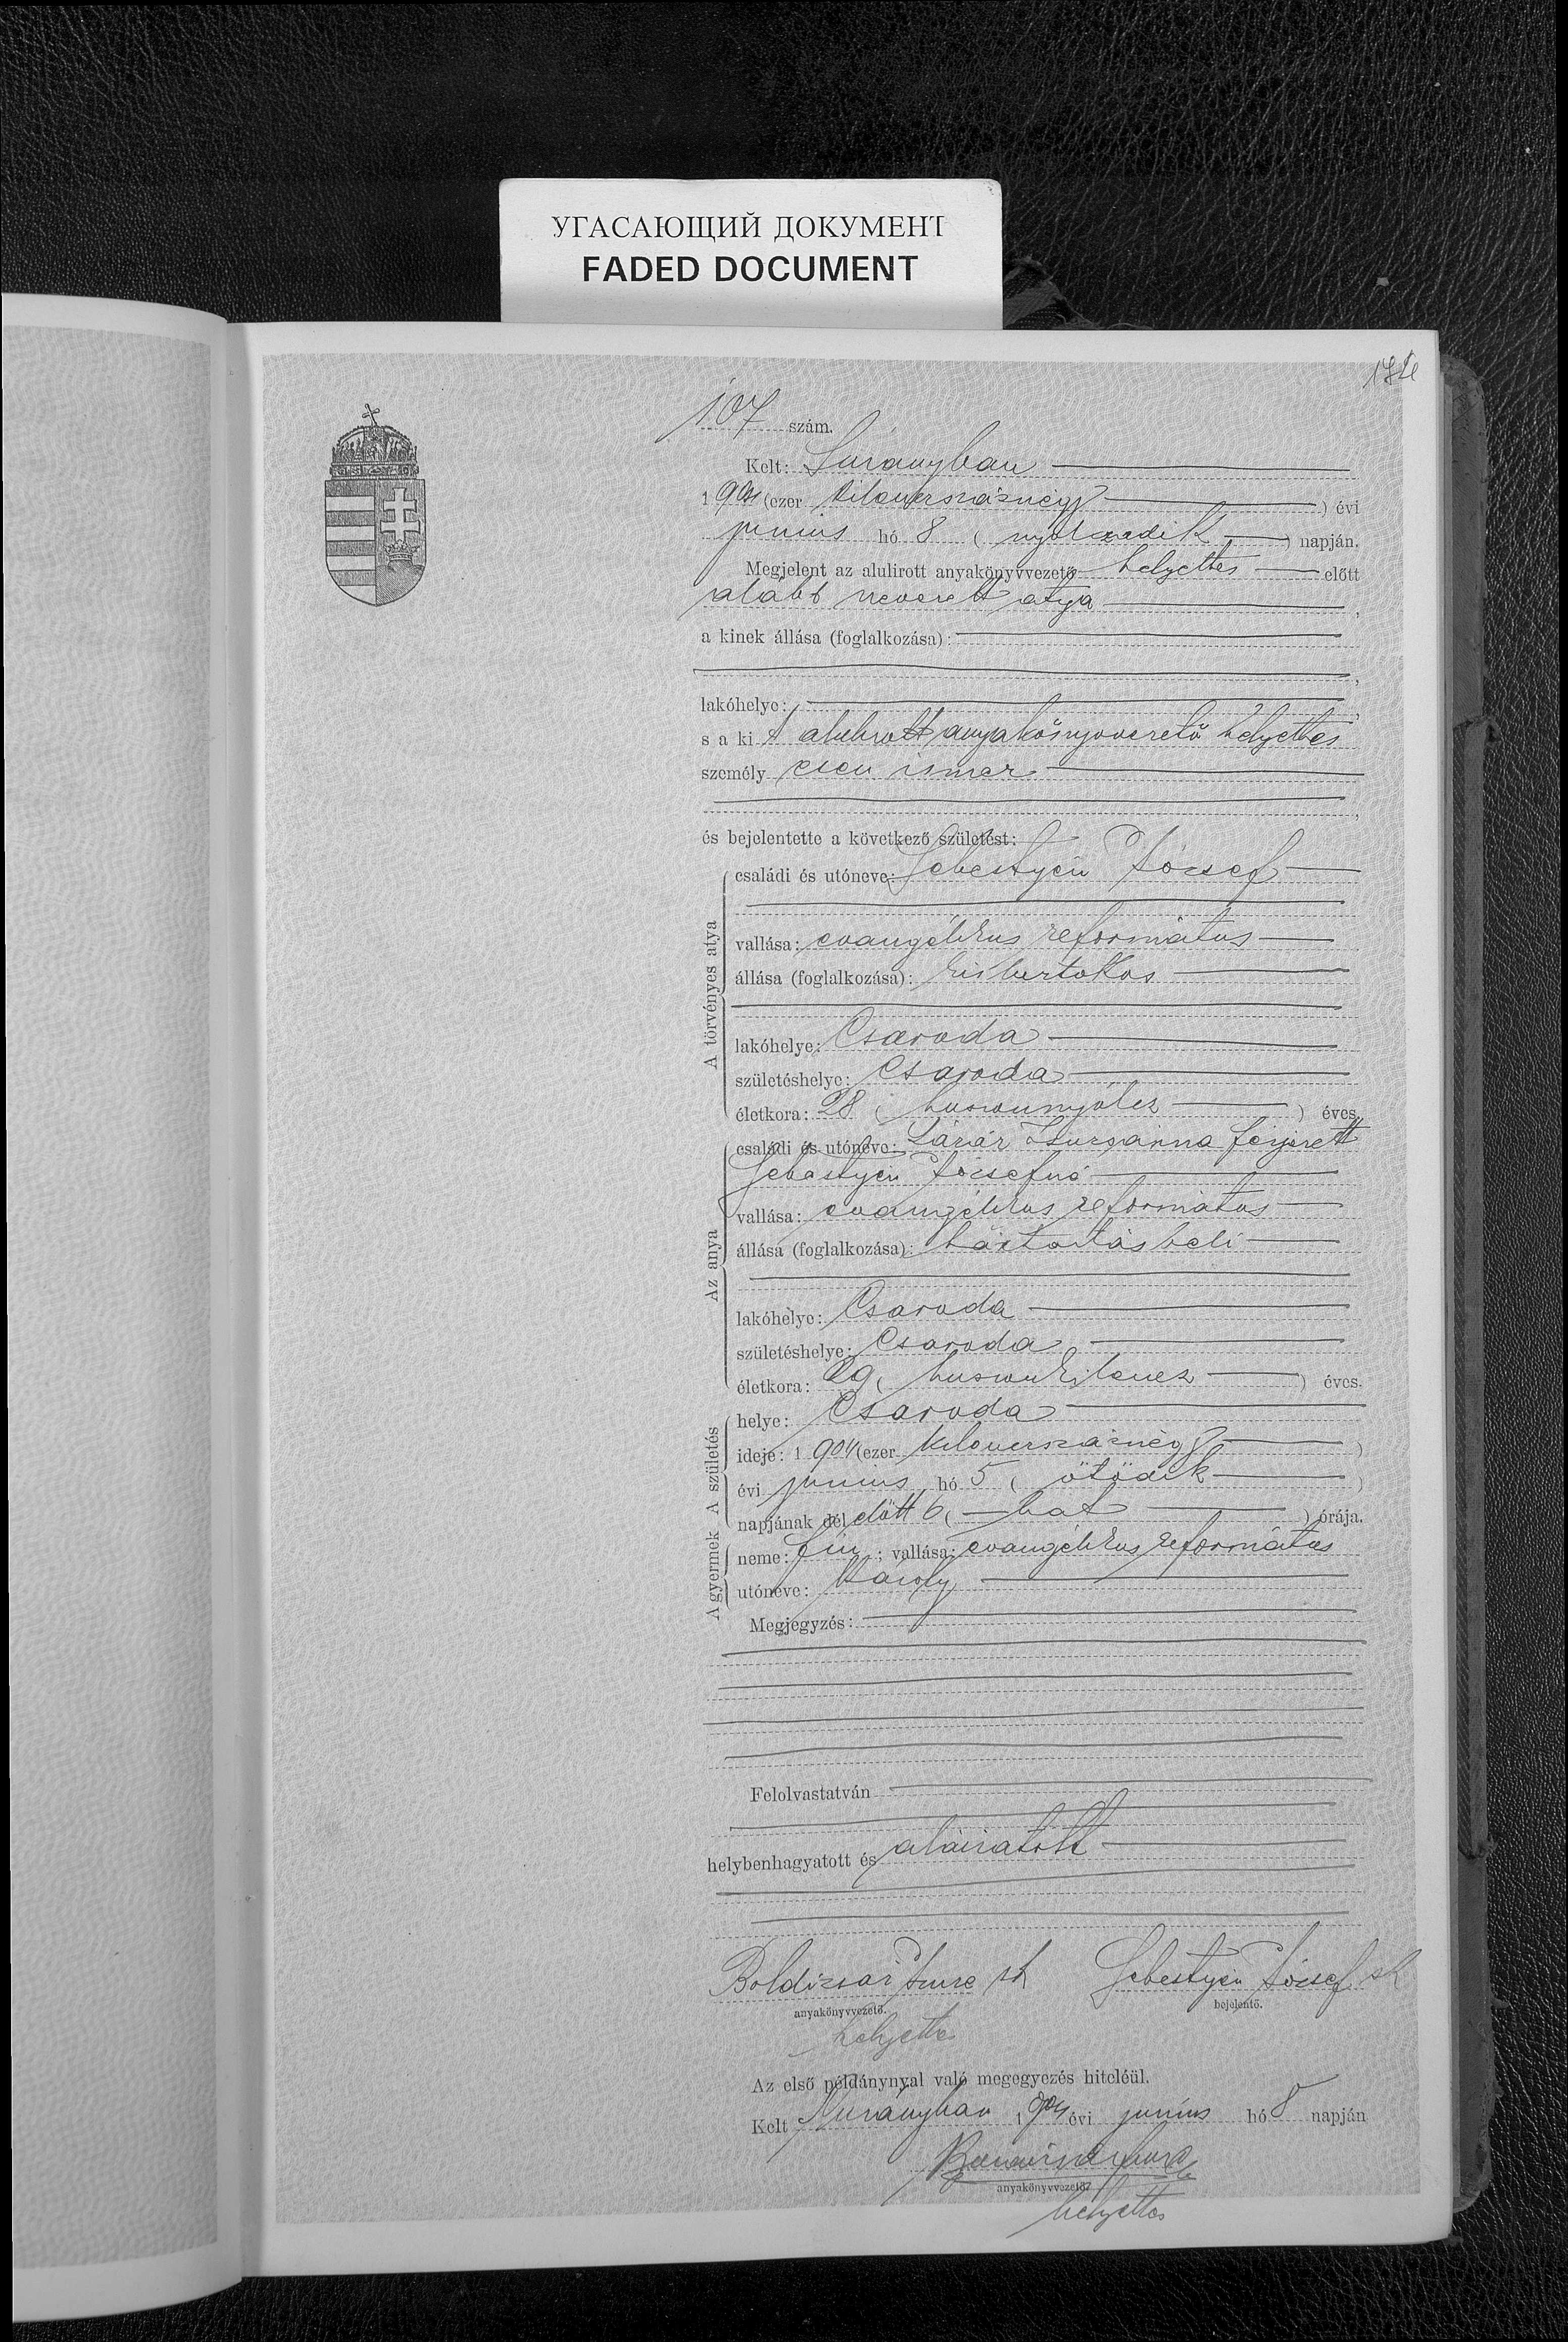 УГАСАЮЩИЙ ДОКУМЕНТ
FADED DOCUMENT
107 szám.
Kelt: Surányban
1904 (ezer kilenczszáznégy) évi
junius hó 8 (nyolczadik) napján.
Megjelent az alulirott anyakönyvvezető helyettes előtt
alább nevezett atya,
a kinek állása (foglalkozása):
lakóhelye:
s a kit alulirott anyakönyvvezető helyettes
személyesen ismer
és bejelentette a következő születést:
A törvényes atya
családi és utóneve: Sebestyén József
vallása: evangélikus református
állása (foglalkozása): kisbirtokos
lakóhelye: Csaroda
születéshelye: Csaroda
életkora: 28 (huszonnyolcz) éves.
Az anya
családi és utóneve: Lázár Zsuzsánna férjezett
Sebestyén Józsefné
vallása: evangélikus református
állása (foglalkozása): háztartásbeli
lakóhelye: Csaroda
születéshelye: Csaroda
életkora: 29 (huszonkilencz) éves.
A születés
helye: Csaroda
ideje: 1904 (ezer kilenczszáznégy)
évi junius hó 5 (ötödik)
napjának délelőtt 6 (hat) órája.
A gyermek
neme: fiu; vallása: evangélikus református
utóneve: Károly
Megjegyzés:
Felolvastatván
helybenhagyatott és aláiratott
Boldizsár Imre sk Sebestyén József sk
anyakönyvvezető. bejelentő.
helyettes
Az első példánynyal való megegyezés hiteléül.
Kelt Surányban 1904 évi junius hó 8 napján
anyakönyvvezető
helyettes